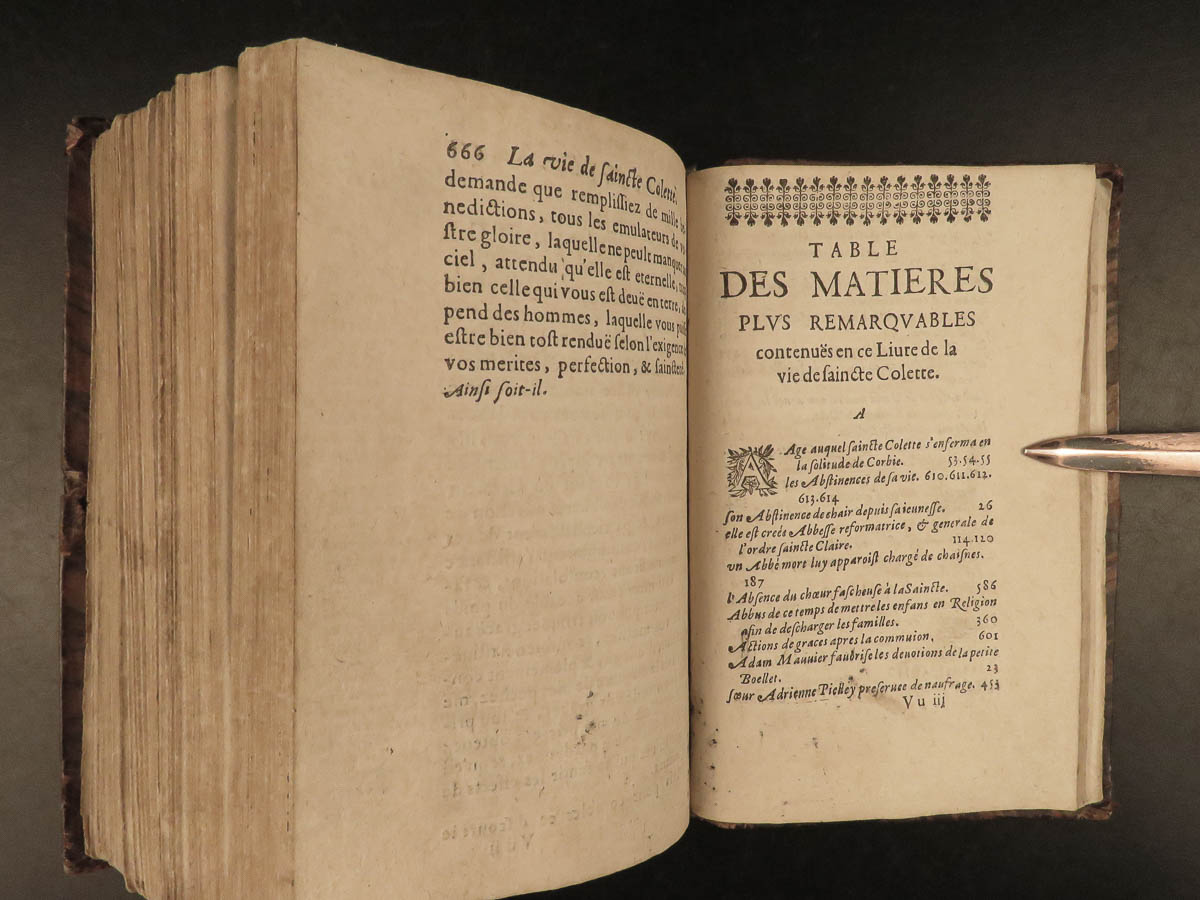 666 La vie de ſaincte Colette,
demande que rempliſſiez de mille be-
nedictions, tous les emulateurs de vo-
ſtre gloire, laquelle ne peult manquer au
ciel, attendu qu'elle eſt eternelle,
bien celle qui vous eſt deuë en terre, de-
pend des hommes, laquelle vous puiſſe
eſtre bien toſt renduë ſelon l'exigence de
vos merites, perfection, & ſaincteté.
Ainſi ſoit-il.
TABLE
DES MATIERES
PLVS REMARQVABLES
contenuës en ce Liure de la
vie de ſaincte Colette.
A
Age auquel ſaincte Colette s'enferma en
la ſolitude de Corbie. 53.54.55
les Abſtinences de ſa vie. 610.611.612.
613.614
ſon Abſtinence de chair depuis ſa ieuneſſe. 26
elle eſt creée Abbeſſe reformatrice, & generale de
l'ordre ſaincte Claire. 114.120
vn Abbé mort luy apparoiſt chargé de chaiſnes.
187
l'Abſence du chœur faſcheuſe à la Saincte. 586
Abbus de ce temps de mettre les enfans en Religion
afin de deſcharger les familles. 360
Actions de graces apres la commuion. 601
Adam Mauuier fauoriſe les deuotions de la petite
Boellet. 23
ſœur Adrienne Pielley preſeruee de naufrage. 453
Vu iij